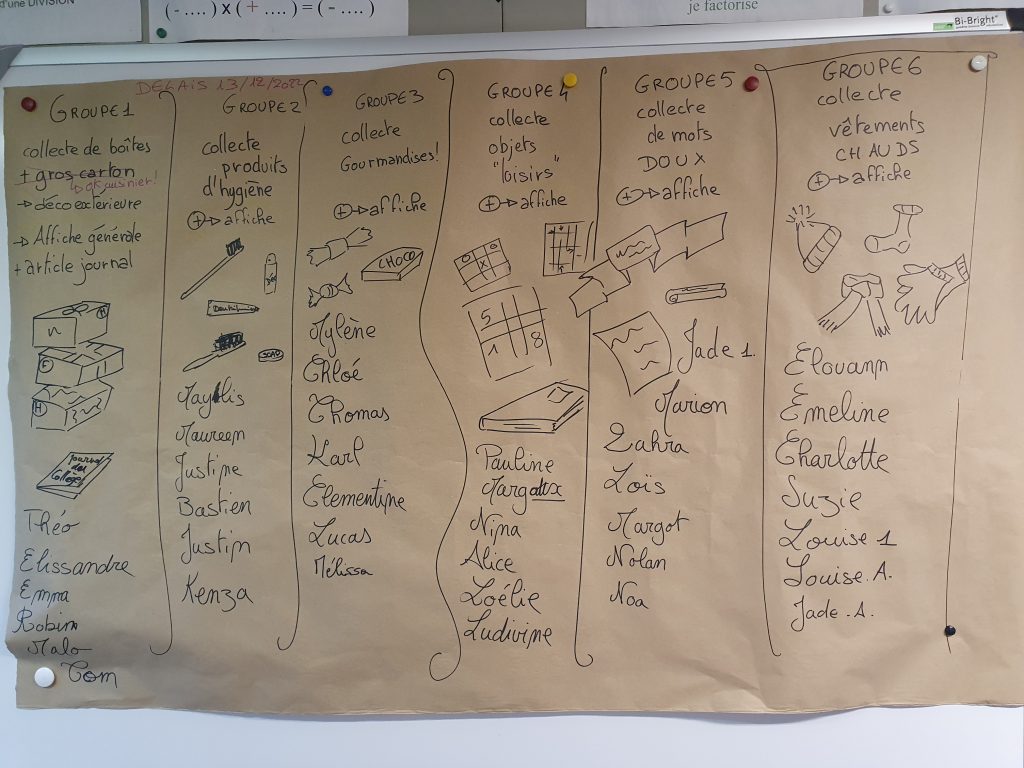 d'une DIVISION
(- ....) x (+ ....) = (- ....)
je factorise
Bi-Bright
DELAIS 13/12/2022
GROUPE 1
collecte de boîtes
+ gros carton
↳ ok cuisinier!
→ déco extérieure
→ Affiche générale
+ article journal
N
E
H
Journal
du
Collège
Théo
Clissandre
Emma
Robin
Malo
Tom
GROUPE 2
collecte
produits
d'hygiène
⊕→ affiche
Dentifrice
SOAP
Maylis
Maureen
Justine
Bastien
Justin
Kenza
GROUPE 3
collecte
Gourmandises!
⊕→ affiche
CHOCO
Mylène
Chloé
Thomas
Karl
Clementine
Lucas
Mélissa
GROUPE 4
collecte
objets
"loisirs"
⊕→ affiche
O O
X
5
1 8
Pauline
Margaux
Nina
Alice
Loélie
Ludivine
GROUPE 5
collecte
de mots
DOUX
⊕→ affiche
Jade 1.
Marion
Zahra
Loïs
Margot
Nolan
Noa
GROUPE 6
collecte
vêtements
CHAUDS
⊕→ affiche
Elouann
Emeline
Charlotte
Suzie
Louise 1
Louise. A.
Jade. A.